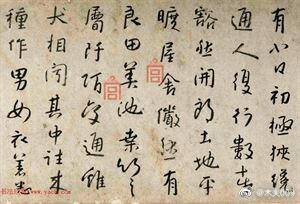 有小口初極狹纔
通人復行數十步
豁然開朗土地平
曠屋舍儼然有
良田美池桑竹之
屬阡陌交通雞
犬相聞其中往來
種作男女衣著悉